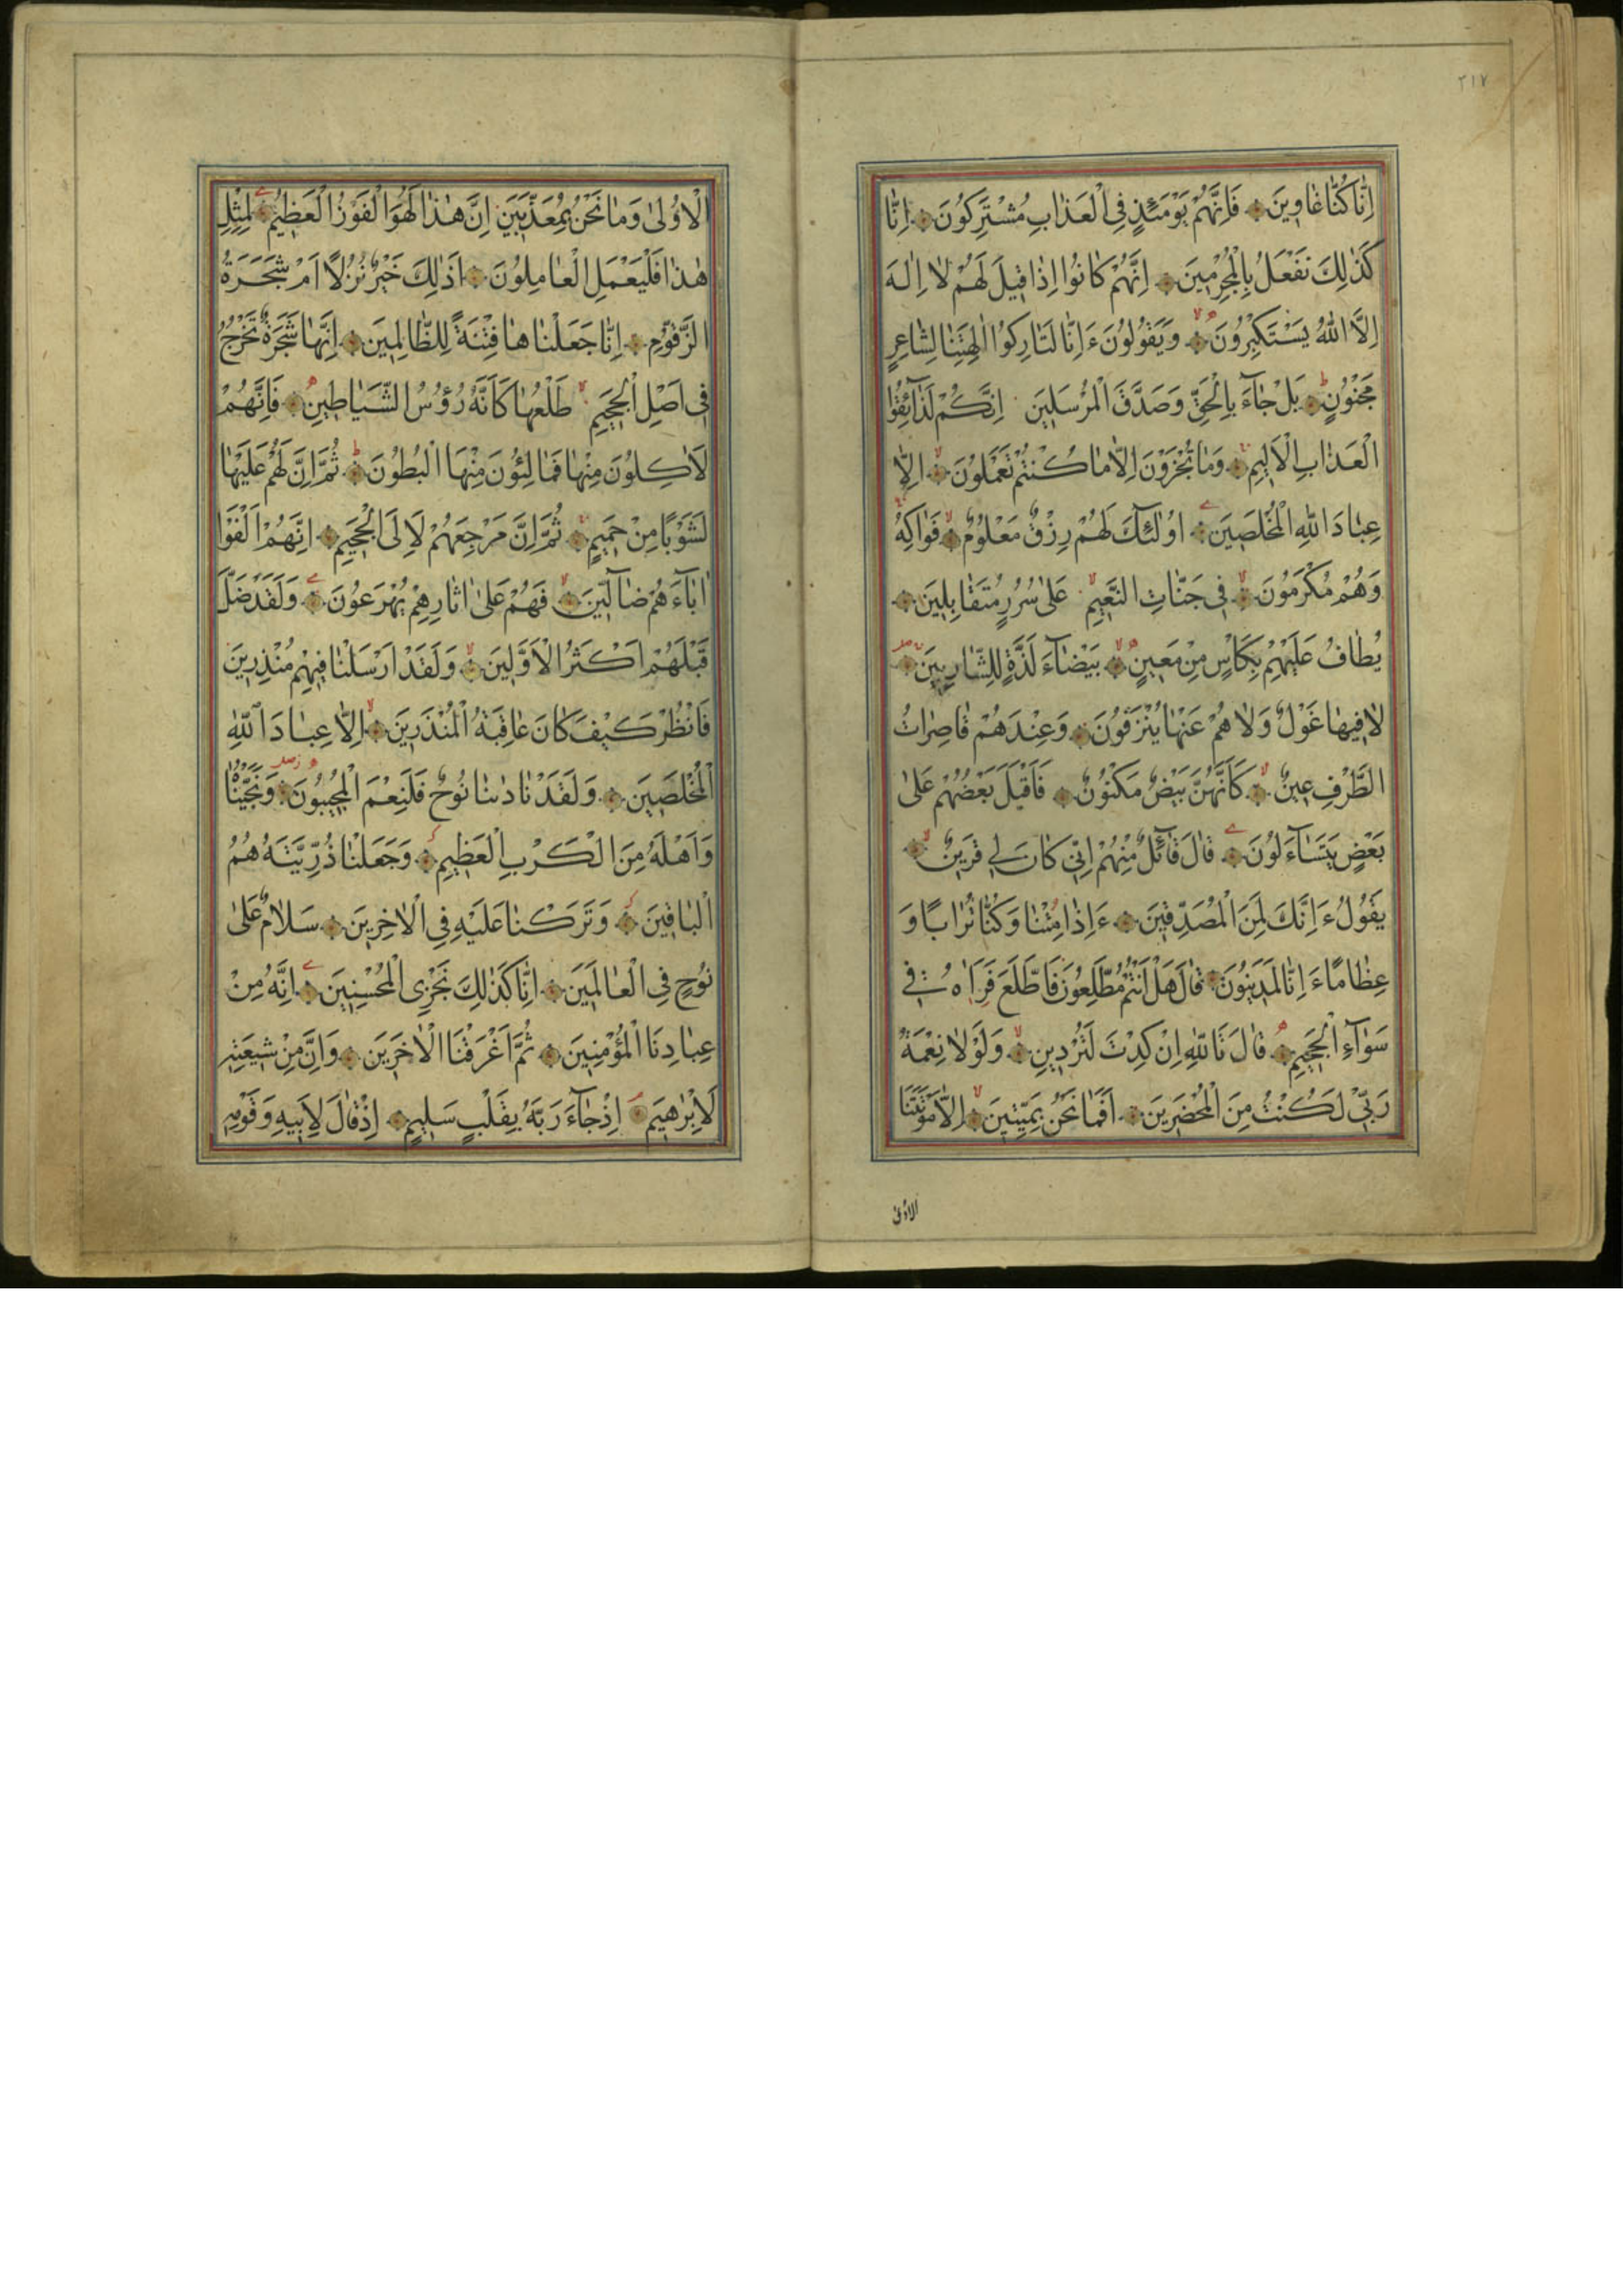 ٢١٧
اِنَّا كُنَّا غَاوِينَ فَاِنَّهُمْ يَوْمَئِذٍ فِى الْعَذَابِ مُشْتَرِكُونَ اِنَّا
كَذٰلِكَ نَفْعَلُ بِالْمُجْرِمِينَ اِنَّهُمْ كَانُوا اِذَا قِيلَ لَهُمْ لَا اِلٰهَ
اِلَّا اللّٰهُ يَسْتَكْبِرُونَ وَيَقُولُونَ ءَاِنَّا لَتَارِكُوا اٰلِهَتِنَا لِشَاعِرٍ
مَجْنُونٍ بَلْ جَآءَ بِالْحَقِّ وَصَدَّقَ الْمُرْسَلِينَ اِنَّكُمْ لَذَآئِقُوا
الْعَذَابِ الْاَلِيمِ وَمَا تُجْزَوْنَ اِلَّا مَا كُنْتُمْ تَعْمَلُونَ اِلَّا
عِبَادَ اللّٰهِ الْمُخْلَصِينَ اُولٰئِكَ لَهُمْ رِزْقٌ مَعْلُومٌ فَوَاكِهُ
وَهُمْ مُكْرَمُونَ فِى جَنَّاتِ النَّعِيمِ عَلٰى سُرُرٍ مُتَقَابِلِينَ
يُطَافُ عَلَيْهِمْ بِكَاْسٍ مِنْ مَعِينٍ بَيْضَآءَ لَذَّةٍ لِلشَّارِبِينَ
لَا فِيهَا غَوْلٌ وَلَا هُمْ عَنْهَا يُنْزَفُونَ وَعِنْدَهُمْ قَاصِرَاتُ
الطَّرْفِ عِينٌ كَاَنَّهُنَّ بَيْضٌ مَكْنُونٌ فَاَقْبَلَ بَعْضُهُمْ عَلٰى
بَعْضٍ يَتَسَآءَلُونَ قَالَ قَآئِلٌ مِنْهُمْ اِنِّى كَانَ لِى قَرِينٌ
يَقُولُ ءَاِنَّكَ لَمِنَ الْمُصَدِّقِينَ ءَاِذَا مِتْنَا وَكُنَّا تُرَابًا وَ
عِظَامًا ءَاِنَّا لَمَدِينُونَ قَالَ هَلْ اَنْتُمْ مُطَّلِعُونَ فَاطَّلَعَ فَرَاٰهُ فِى
سَوَآءِ الْجَحِيمِ قَالَ تَاللّٰهِ اِنْ كِدْتَ لَتُرْدِينِ وَلَوْلَا نِعْمَةُ
رَبِّى لَكُنْتُ مِنَ الْمُحْضَرِينَ اَفَمَا نَحْنُ بِمَيِّتِينَ اِلَّا مَوْتَتَنَا
الاولى
الْاُولٰى وَمَا نَحْنُ بِمُعَذَّبِينَ اِنَّ هٰذَا لَهُوَ الْفَوْزُ الْعَظِيمُ لِمِثْلِ
هٰذَا فَلْيَعْمَلِ الْعَامِلُونَ اَذٰلِكَ خَيْرٌ نُزُلًا اَمْ شَجَرَةُ
الزَّقُّومِ اِنَّا جَعَلْنَاهَا فِتْنَةً لِلظَّالِمِينَ اِنَّهَا شَجَرَةٌ تَخْرُجُ
فِى اَصْلِ الْجَحِيمِ طَلْعُهَا كَاَنَّهُ رُؤُسُ الشَّيَاطِينِ فَاِنَّهُمْ
لَاٰكِلُونَ مِنْهَا فَمَالِئُونَ مِنْهَا الْبُطُونَ ثُمَّ اِنَّ لَهُمْ عَلَيْهَا
لَشَوْبًا مِنْ حَمِيمٍ ثُمَّ اِنَّ مَرْجِعَهُمْ لَاِلَى الْجَحِيمِ اِنَّهُمْ اَلْفَوْا
اٰبَآءَهُمْ ضَآلِّينَ فَهُمْ عَلٰى اٰثَارِهِمْ يُهْرَعُونَ وَلَقَدْ ضَلَّ
قَبْلَهُمْ اَكْثَرُ الْاَوَّلِينَ وَلَقَدْ اَرْسَلْنَا فِيهِمْ مُنْذِرِينَ
فَانْظُرْ كَيْفَ كَانَ عَاقِبَةُ الْمُنْذَرِينَ اِلَّا عِبَادَ اللّٰهِ
الْمُخْلَصِينَ وَلَقَدْ نَادٰىنَا نُوحٌ فَلَنِعْمَ الْمُجِيبُونَ وَنَجَّيْنَاهُ
وَاَهْلَهُ مِنَ الْكَرْبِ الْعَظِيمِ وَجَعَلْنَا ذُرِّيَّتَهُ هُمُ
الْبَاقِينَ وَتَرَكْنَا عَلَيْهِ فِى الْاٰخِرِينَ سَلَامٌ عَلٰى
نُوحٍ فِى الْعَالَمِينَ اِنَّا كَذٰلِكَ نَجْزِى الْمُحْسِنِينَ اِنَّهُ مِنْ
عِبَادِنَا الْمُؤْمِنِينَ ثُمَّ اَغْرَقْنَا الْاٰخَرِينَ وَاِنَّ مِنْ شِيعَتِهِ
لَاِبْرٰهِيمَ اِذْ جَآءَ رَبَّهُ بِقَلْبٍ سَلِيمٍ اِذْ قَالَ لِاَبِيهِ وَقَوْمِهِ